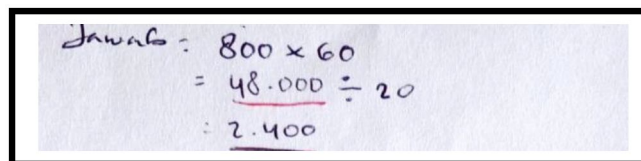 Jawab : 800 × 60
= 48.000 ÷ 20
: 2.400